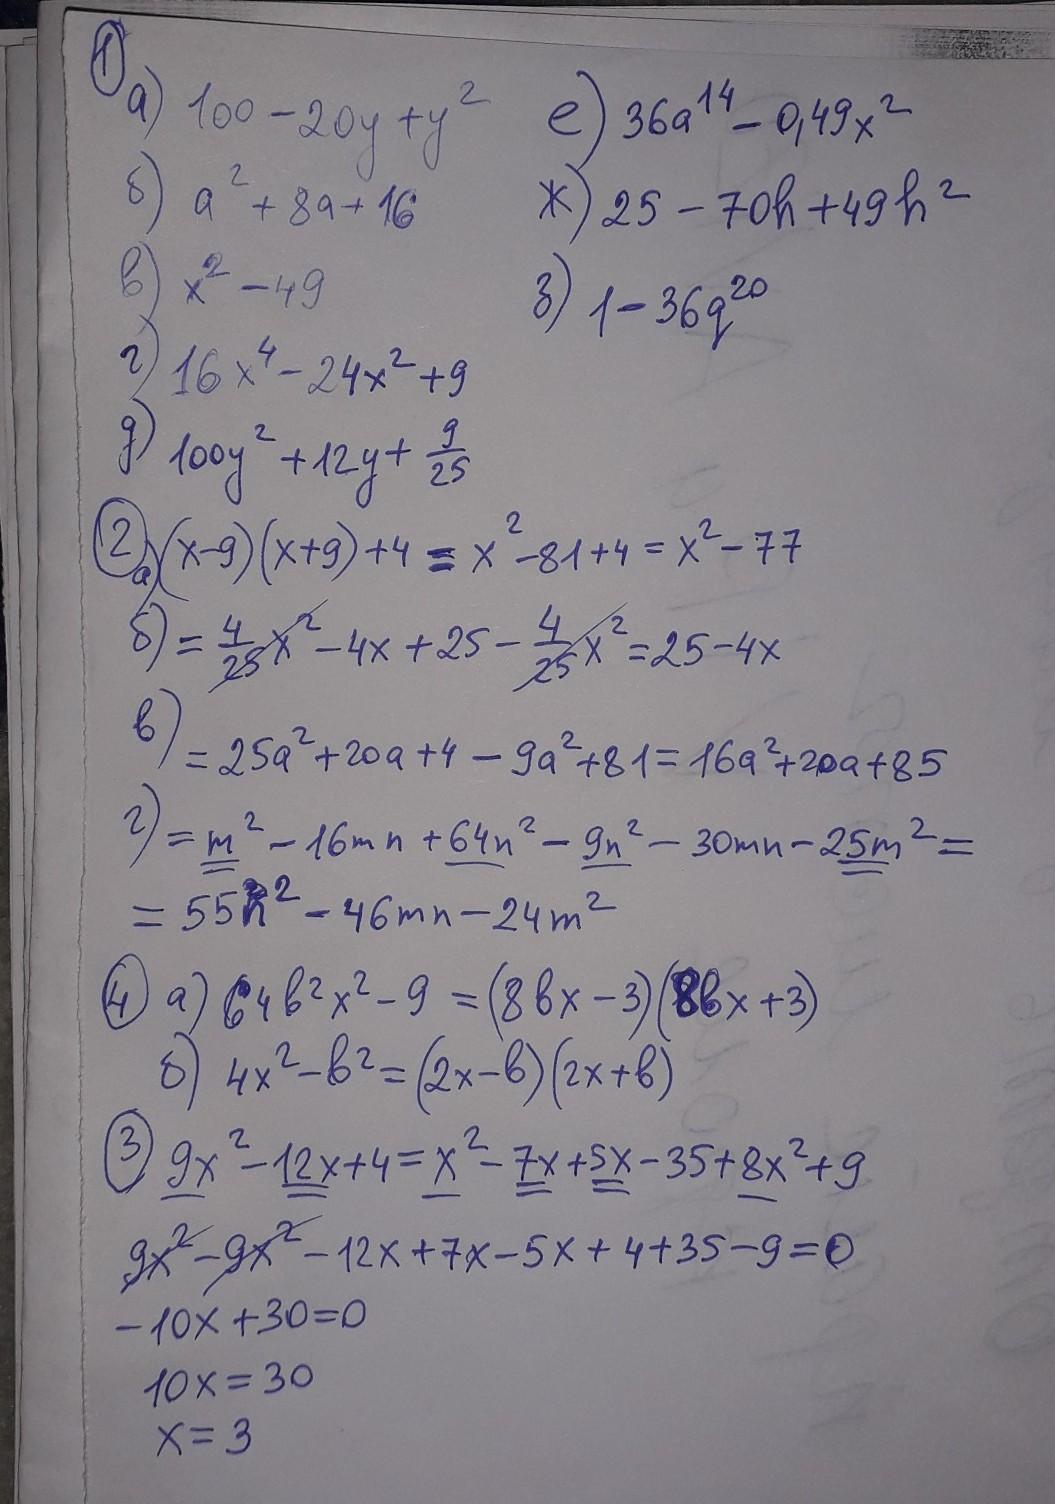 1
а) 100 - 20y + y²
б) a² + 8a + 16
в) x² - 49
г) 16x⁴ - 24x² + 9
д) 100y² + 12y + 9/25
е) 36a¹⁴ - 0,49x²
ж) 25 - 70h + 49h²
з) 1 - 36q²⁰
2 а) (x-9)(x+9)+4 = x² - 81 + 4 = x² - 77
б) = 4/25 x² - 4x + 25 - 4/25 x² = 25 - 4x
в) = 25a² + 20a + 4 - 9a² + 81 = 16a² + 20a + 85
г) = m² - 16mn + 64n² - 9n² - 30mn - 25m² =
= 55n² - 46mn - 24m²
4 а) 64b²x² - 9 = (8bx - 3)(8bx + 3)
б) 4x² - b² = (2x - b)(2x + b)
3 9x² - 12x + 4 = x² - 7x + 5x - 35 + 8x² + 9
9x² - 9x² - 12x + 7x - 5x + 4 + 35 - 9 = 0
-10x + 30 = 0
10x = 30
x = 3